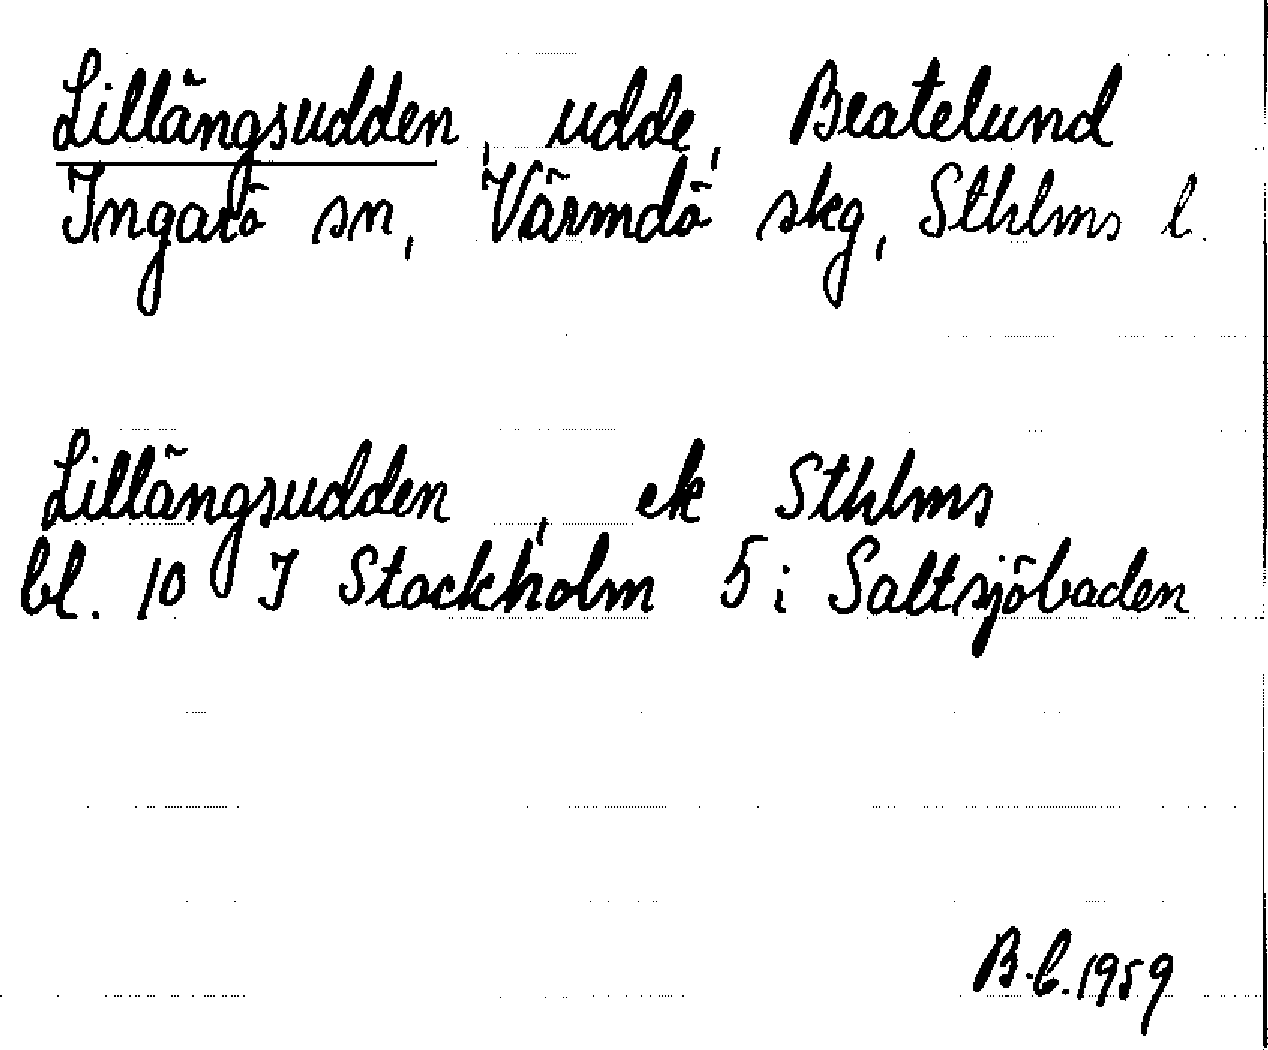 Lillängsudden, udde, Beatelund
Ingarö sn, Värmdö skg, Sthlms l.
Lillängsudden, ek Sthlms
bl. 10 J Stockholm 5 i Saltsjöbaden
B.C. 1959